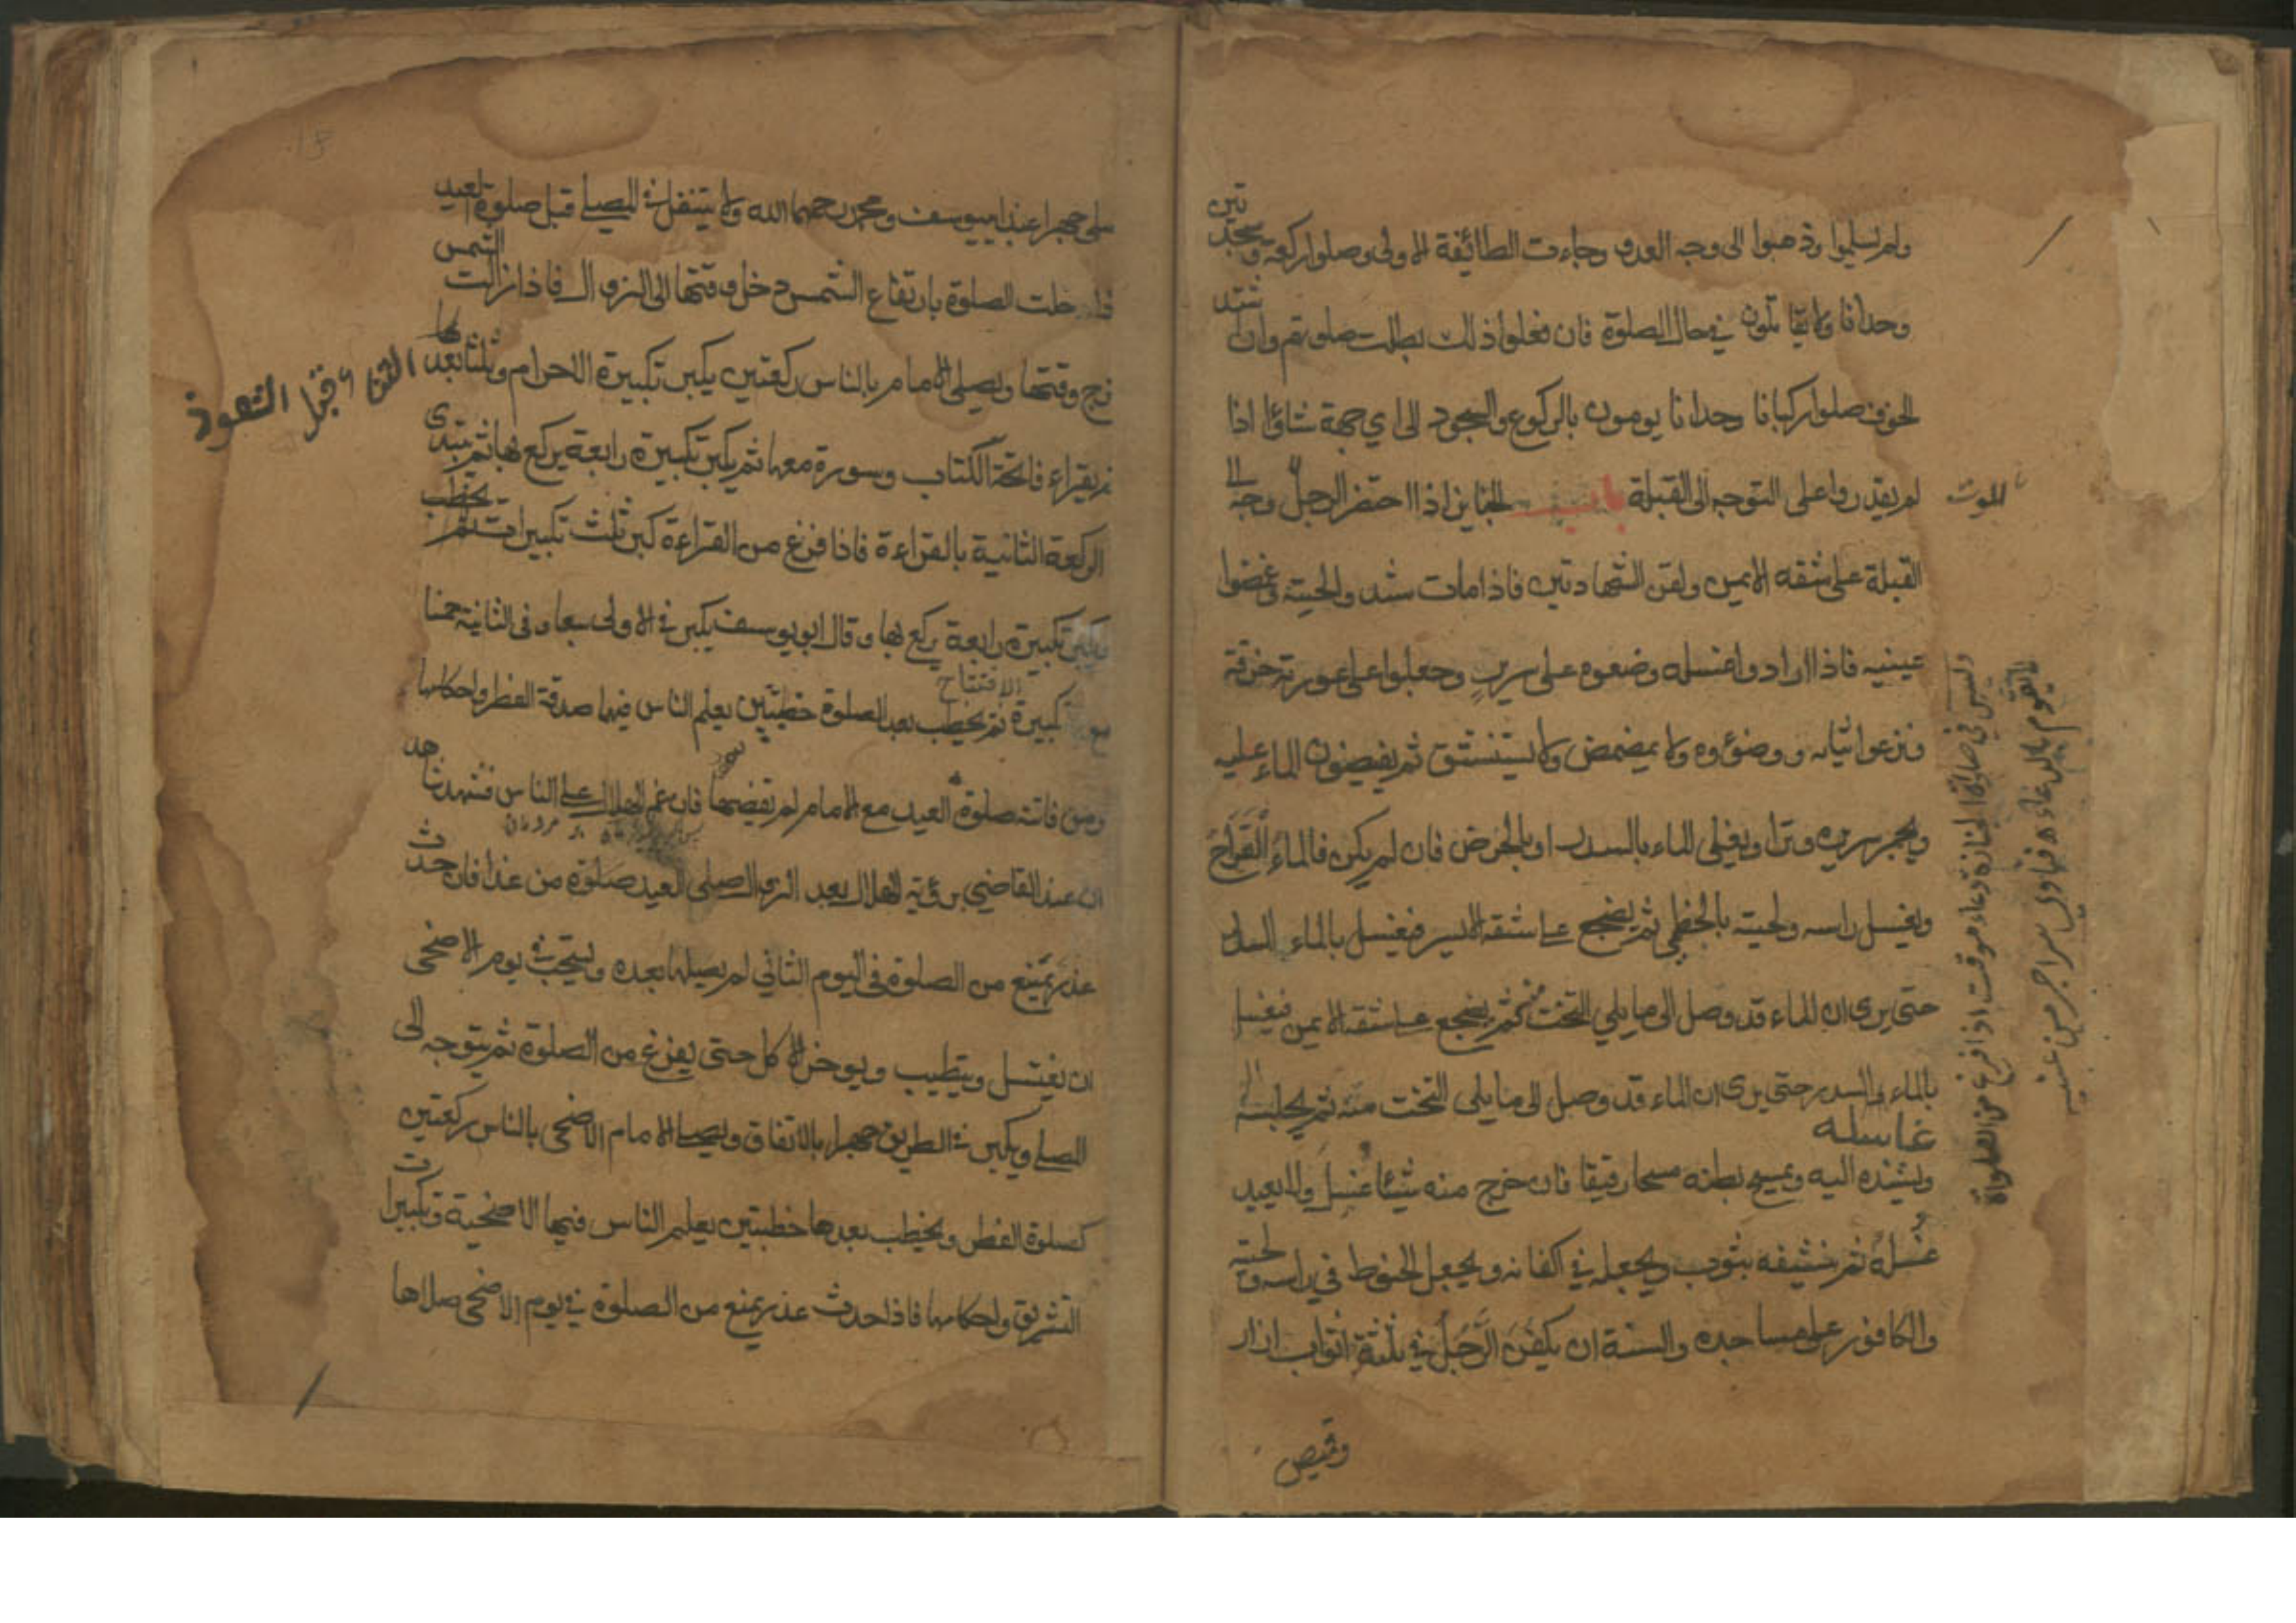 ولم يسلموا وذهبوا الى وجه العدو وجاءت الطائفة الاولى وصلوا ركعة وسجدتين
وحدانا ولا يقاتلون في حال الصلوة فان فعلوا ذلك بطلت صلوتهم وان اشتد
الخوف صلوا ركبانا وحدانا يومون بالركوع والسجود الى اي جهة شاؤا اذا
لم يقدروا على التوجه الى القبلة باب الجنايز اذا احتضر الرجل وجه الى
الموت
القبلة على شقه الايمن ولقن الشهادتين فاذا مات شدوا لحيته وغمضوا
عينيه فاذا ارادوا غسله وضعوه على سرير وجعلوا على عورته خرقة
ونزعوا ثيابه ووضؤوه ولا يمضمض ولا يستنشق ثم يفيضون الماء عليه
ويجمر سريره وترا ويغلى الماء بالسدر او بالحرض فان لم يكن فالماء القراح
ويغسل راسه ولحيته بالخطمي ثم يضجع على شقه الايسر فيغسل بالماء والسدر
حتى يرى ان الماء قد وصل الى ما يلي التخت منه ثم يضجع على شقه الايمن فيغسل
بالماء والسدر حتى يرى ان الماء قد وصل الى ما يلي التخت منه ثم يجلسه
غاسله
ويسنده اليه ويمسح بطنه مسحا رقيقا فان خرج منه شيئا غسل ولا يعيد
غسله ثم ينشفه بثوب ويجعله في اكفانه ويجعل الحنوط في راسه ولحيته
والكافور على مساجده والسنة ان يكفن الرجل في ثلثة اثواب ازار
وقميص
وليس في صلوة الجنازة دعاء موقت اذا فرغ من الصلوة
لا يقوم بالدعاء فتاوى سراجر من عينه
صلى جهرا عند ابيوسف ومحمد رحمهما الله ولا يتنفل في المصلي قبل صلوة العيد
فاذا حلت الصلوة بارتفاع الشمس دخل وقتها الى الزوال فاذا زالت الشمس
خرج وقتها ويصلى الامام بالناس ركعتين يكبر تكبيرة الاحرام وثلثا بعدها
الثناء قبل التعوذ
ثم يقراء فاتحة الكتاب وسورة معها ثم يكبر تكبيرة رابعة يركع بها ثم يبتدى
الركعة الثانية بالقراءة فاذا فرغ من القراءة كبر ثلث تكبيرات ثم يخطب
ويكبر تكبيرة رابعة يركع بها وقال ابويوسف يكبر في الاولى سبعا وفى الثانية خمسا
الافتتاح
مع كبيرة ثم يخطب بعد الصلوة خطبتين يعلم الناس فيها صدقة الفطر واحكامها
ومن فاتته صلوة العيد مع الامام لم يقضها فان غم الهلال على الناس فشهدنا هد
ان عند القاضي برؤية الهلال بعد الزوال صلى العيد صلوة من غدا فان حدث
عذر يمنع من الصلوة فى اليوم الثاني لم يصيلها بعده ويستحب في يوم الاضحى
ان يغتسل ويتطيب ويوخر الاكل حتى يفرغ من الصلوة ثم يتوجه الى
المصلي ويكبر في الطريق جهرا بالاتفاق ويصلي الامام الاضحى بالناس ركعتين
كصلوة الفطر ويخطب بعدها خطبتين يعلم الناس فيها الاضحية وتكبيرات
التشريق واحكامها فاذا حدث عذر يمنع من الصلوة في يوم الاضحى صلاها